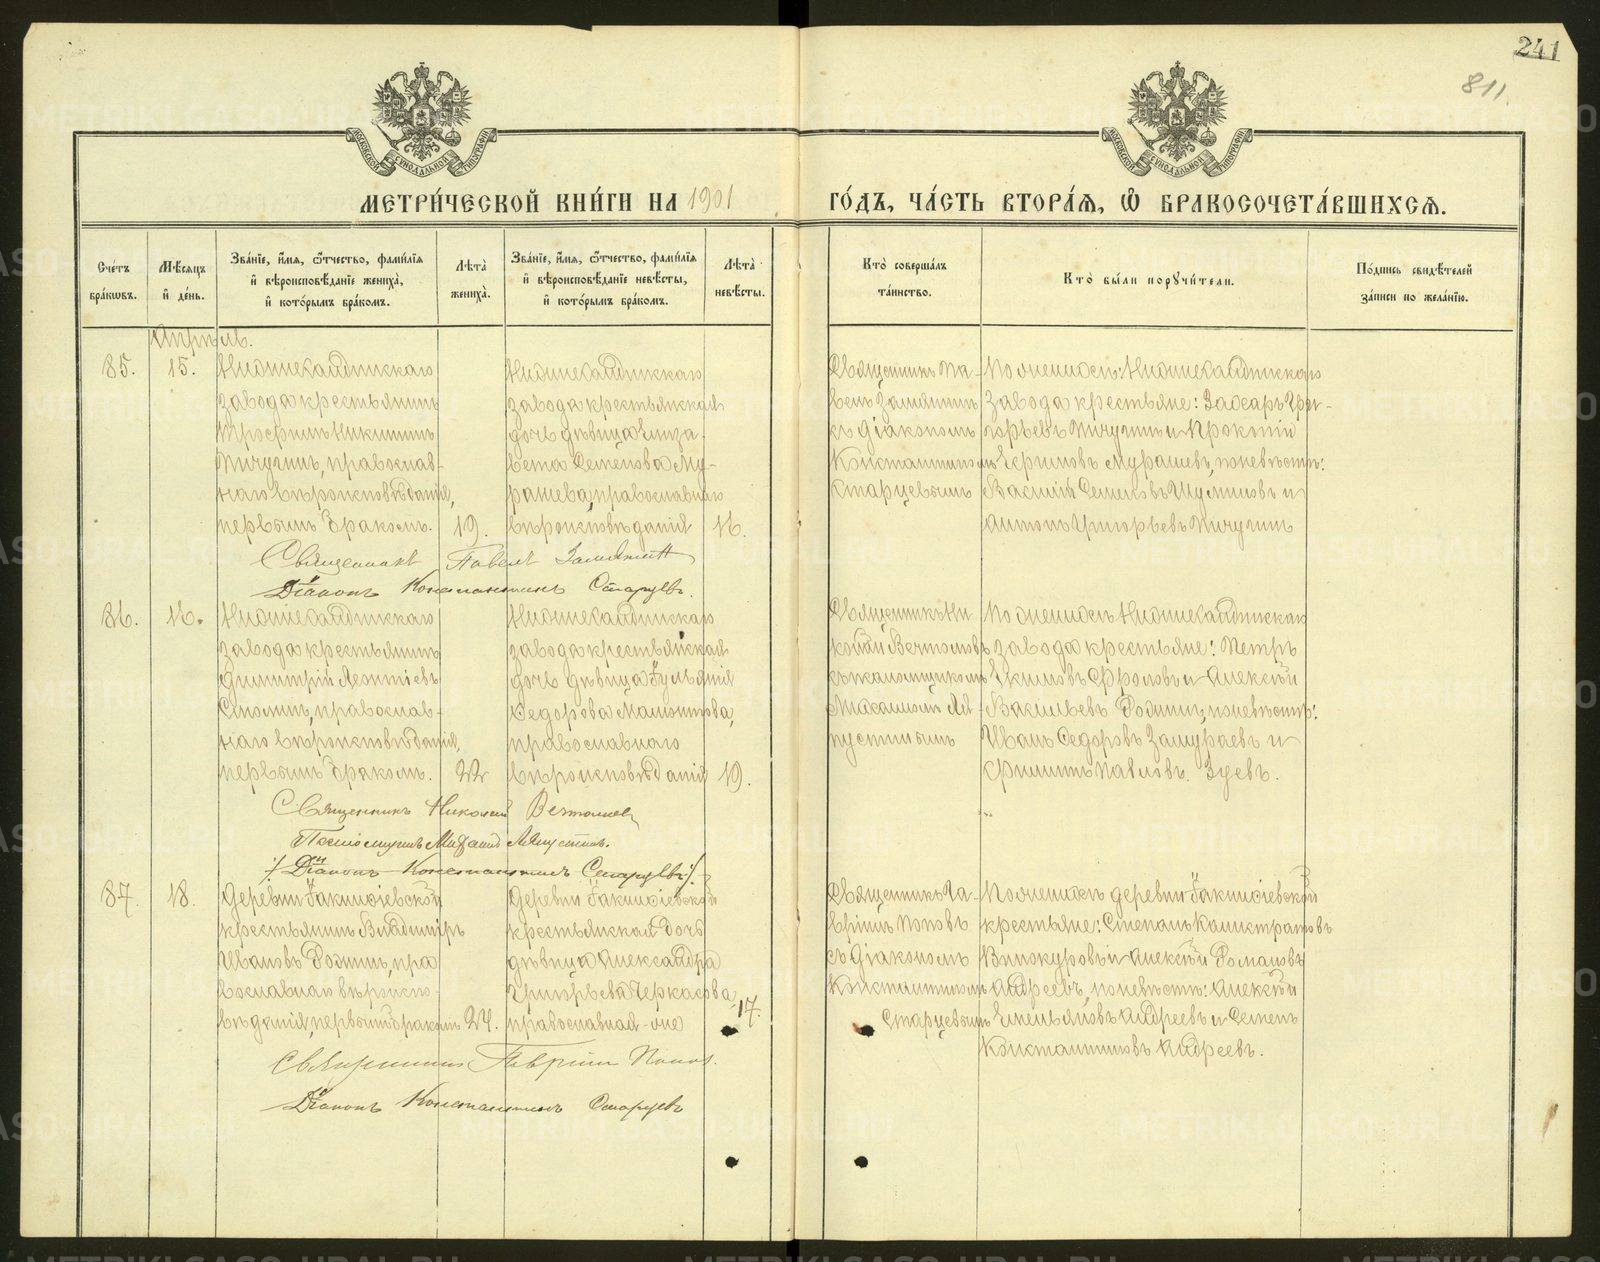 241
811
МЕТРИ́ЧЕСКОЙ КНИ́ГИ НА 1901 ГО́ДЪ, ЧА́СТЬ ВТОРА́Я, Ѡ БРАКОСОЧЕТА́ВШИХСѦ.
Сче́тъ бра́кωвъ.
Мѣ́сяцъ и҆ де́нь.
Зва́нїе, и҆́мя, ѻ҆́тчество, фами́лїя и҆ вѣроисповѣ́данїе жениха̀, и҆ кото́рымъ бра́комъ.
Лѣ́та жениха̀.
Зва́нїе, и҆́мя, ѻ҆́тчество, фами́лїя и҆ вѣроисповѣ́данїе невѣ́сты, и҆ кото́рымъ бра́комъ.
Лѣ́та невѣ́сты.
Кто̀ соверша́лъ та́инство.
Кто̀ бы́ли поручи́тели.
По́дпись свидѣ́телей за́писи по жела́нїю.
Апрѣль.
85.
15.
Нижнесалдинскаго
завода крестьянинъ
Трофимъ Никитинъ
Пичугинъ, православ-
наго вѣроисповѣданія,
первымъ бракомъ.
19.
Нижнесалдинскаго
завода крестьянская
дочь дѣвица Елиза-
вета Семенова Му-
рашева, православнаго
вѣроисповѣданія
16.
Священникъ Па-
велъ Замятинъ
съ діакономъ
Константиномъ
Старцевымъ
По женихѣ: Нижнесалдинскаго
завода крестьяне: Захаръ Григ-
орьевъ Пичугинъ и Прокопій
Мурашевъ, по невѣстѣ:
Василій Семеновъ и
Антонъ Григорьевъ Пичугинъ
Священникъ Павелъ Замятинъ
Діаконъ Константинъ Старцевъ.
86.
16.
Нижнесалдинскаго
завода крестьянинъ
Димитрій Леонтіевъ
православ-
наго вѣроисповѣданія,
первымъ бракомъ.
22
Нижнесалдинскаго
завода крестьянская
дочь дѣвица Іуліанія
Ѳедорова
православнаго
вѣроисповѣданія
19.
Священникъ Ни-
колай Вечтомовъ
съ псаломщикомъ
Михаиломъ Ля-
пустинымъ
По женихѣ Нижнесалдинскаго
завода крестьяне: Петръ
Екимовъ Фроловъ и Алексѣй
Васильевъ по невѣстѣ:
Иванъ Ѳедоровъ Замураевъ и
Филиппъ Павловъ Зуевъ.
Священникъ Николай Вечтомовъ
Псаломщикъ Михаилъ Ляпустинъ.
Діаконъ Константинъ Старцевъ
87.
18.
Деревни Іакинѳіевской
крестьянинъ Владиміръ
Ивановъ пра
вославнаго вѣроиспо-
вѣданія, первымъ бракомъ
24.
Деревни Іакинѳіевской
крестьянская дочь
дѣвица Александра
Григорьева Черкасова
православная-же
17.
Священникъ Га-
вріилъ Поповъ
съ діакономъ
Константиномъ
Старцевымъ
По женихѣ деревни Іакинѳіевской
крестьяне: Степанъ Калистратовъ
Винокуровъ и Алексѣй Романовъ
Андреевъ, по невѣстѣ: Алексѣй
Емельяновъ Андреевъ и Семенъ
Константиновъ Андреевъ.
Священникъ Гавріилъ Поповъ.
Діаконъ Константинъ Старцевъ